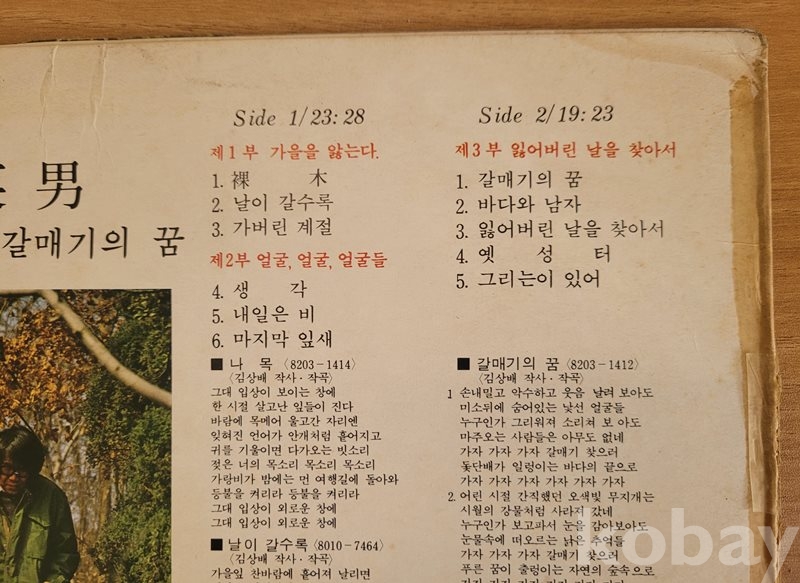 男
갈매기의 꿈
Side 1/23:28
제1부 가을을 앓는다.
1. 裸 木
2. 날이 갈수록
3. 가버린 계절
제2부 얼굴, 얼굴, 얼굴들
4. 생 각
5. 내일은 비
6. 마지막 잎새
■ 나 목 〈8203-1414〉
〈김상배 작사·작곡〉
그대 입상이 보이는 창에
한 시절 살고난 잎들이 진다
바람에 목메어 울고간 자리엔
잊혀진 언어가 안개처럼 흩어지고
귀를 기울이면 다가오는 빗소리
젖은 너의 목소리 목소리 목소리
가랑비가 밤에는 먼 여행길에 돌아와
등불을 켜리라 등불을 켜리라
그대 입상이 외로운 창에
그대 입상이 외로운 창에
■ 날이 갈수록 〈8010-7464〉
〈김상배 작사·작곡〉
가을잎 찬바람에 흩어져 날리면
Side 2/19:23
제3부 잃어버린 날을 찾아서
1. 갈매기의 꿈
2. 바다와 남자
3. 잃어버린 날을 찾아서
4. 옛 성 터
5. 그리는이 있어
■ 갈매기의 꿈 〈8203-1412〉
〈김상배 작사·작곡〉
1 손내밀고 악수하고 웃음 날려 보아도
미소뒤에 숨어있는 낯선 얼굴들
누구인가 그리워져 소리쳐 보 아도
마주오는 사람들은 아무도 없네
가자 가자 가자 갈매기 찾으러
돛단배가 일렁이는 바다의 끝으로
가자 가자 가자 가자 가자 가자
2. 어린 시절 간직했던 오색빛 무지개는
시월의 강물처럼 사라져 갔네
누구인가 보고파서 눈을 감아보아도
눈물속에 떠오르는 낡은 추억들
가자 가자 가자 갈매기 찾으러
푸른 꿈이 출렁이는 자연의 숲속으로
kobay